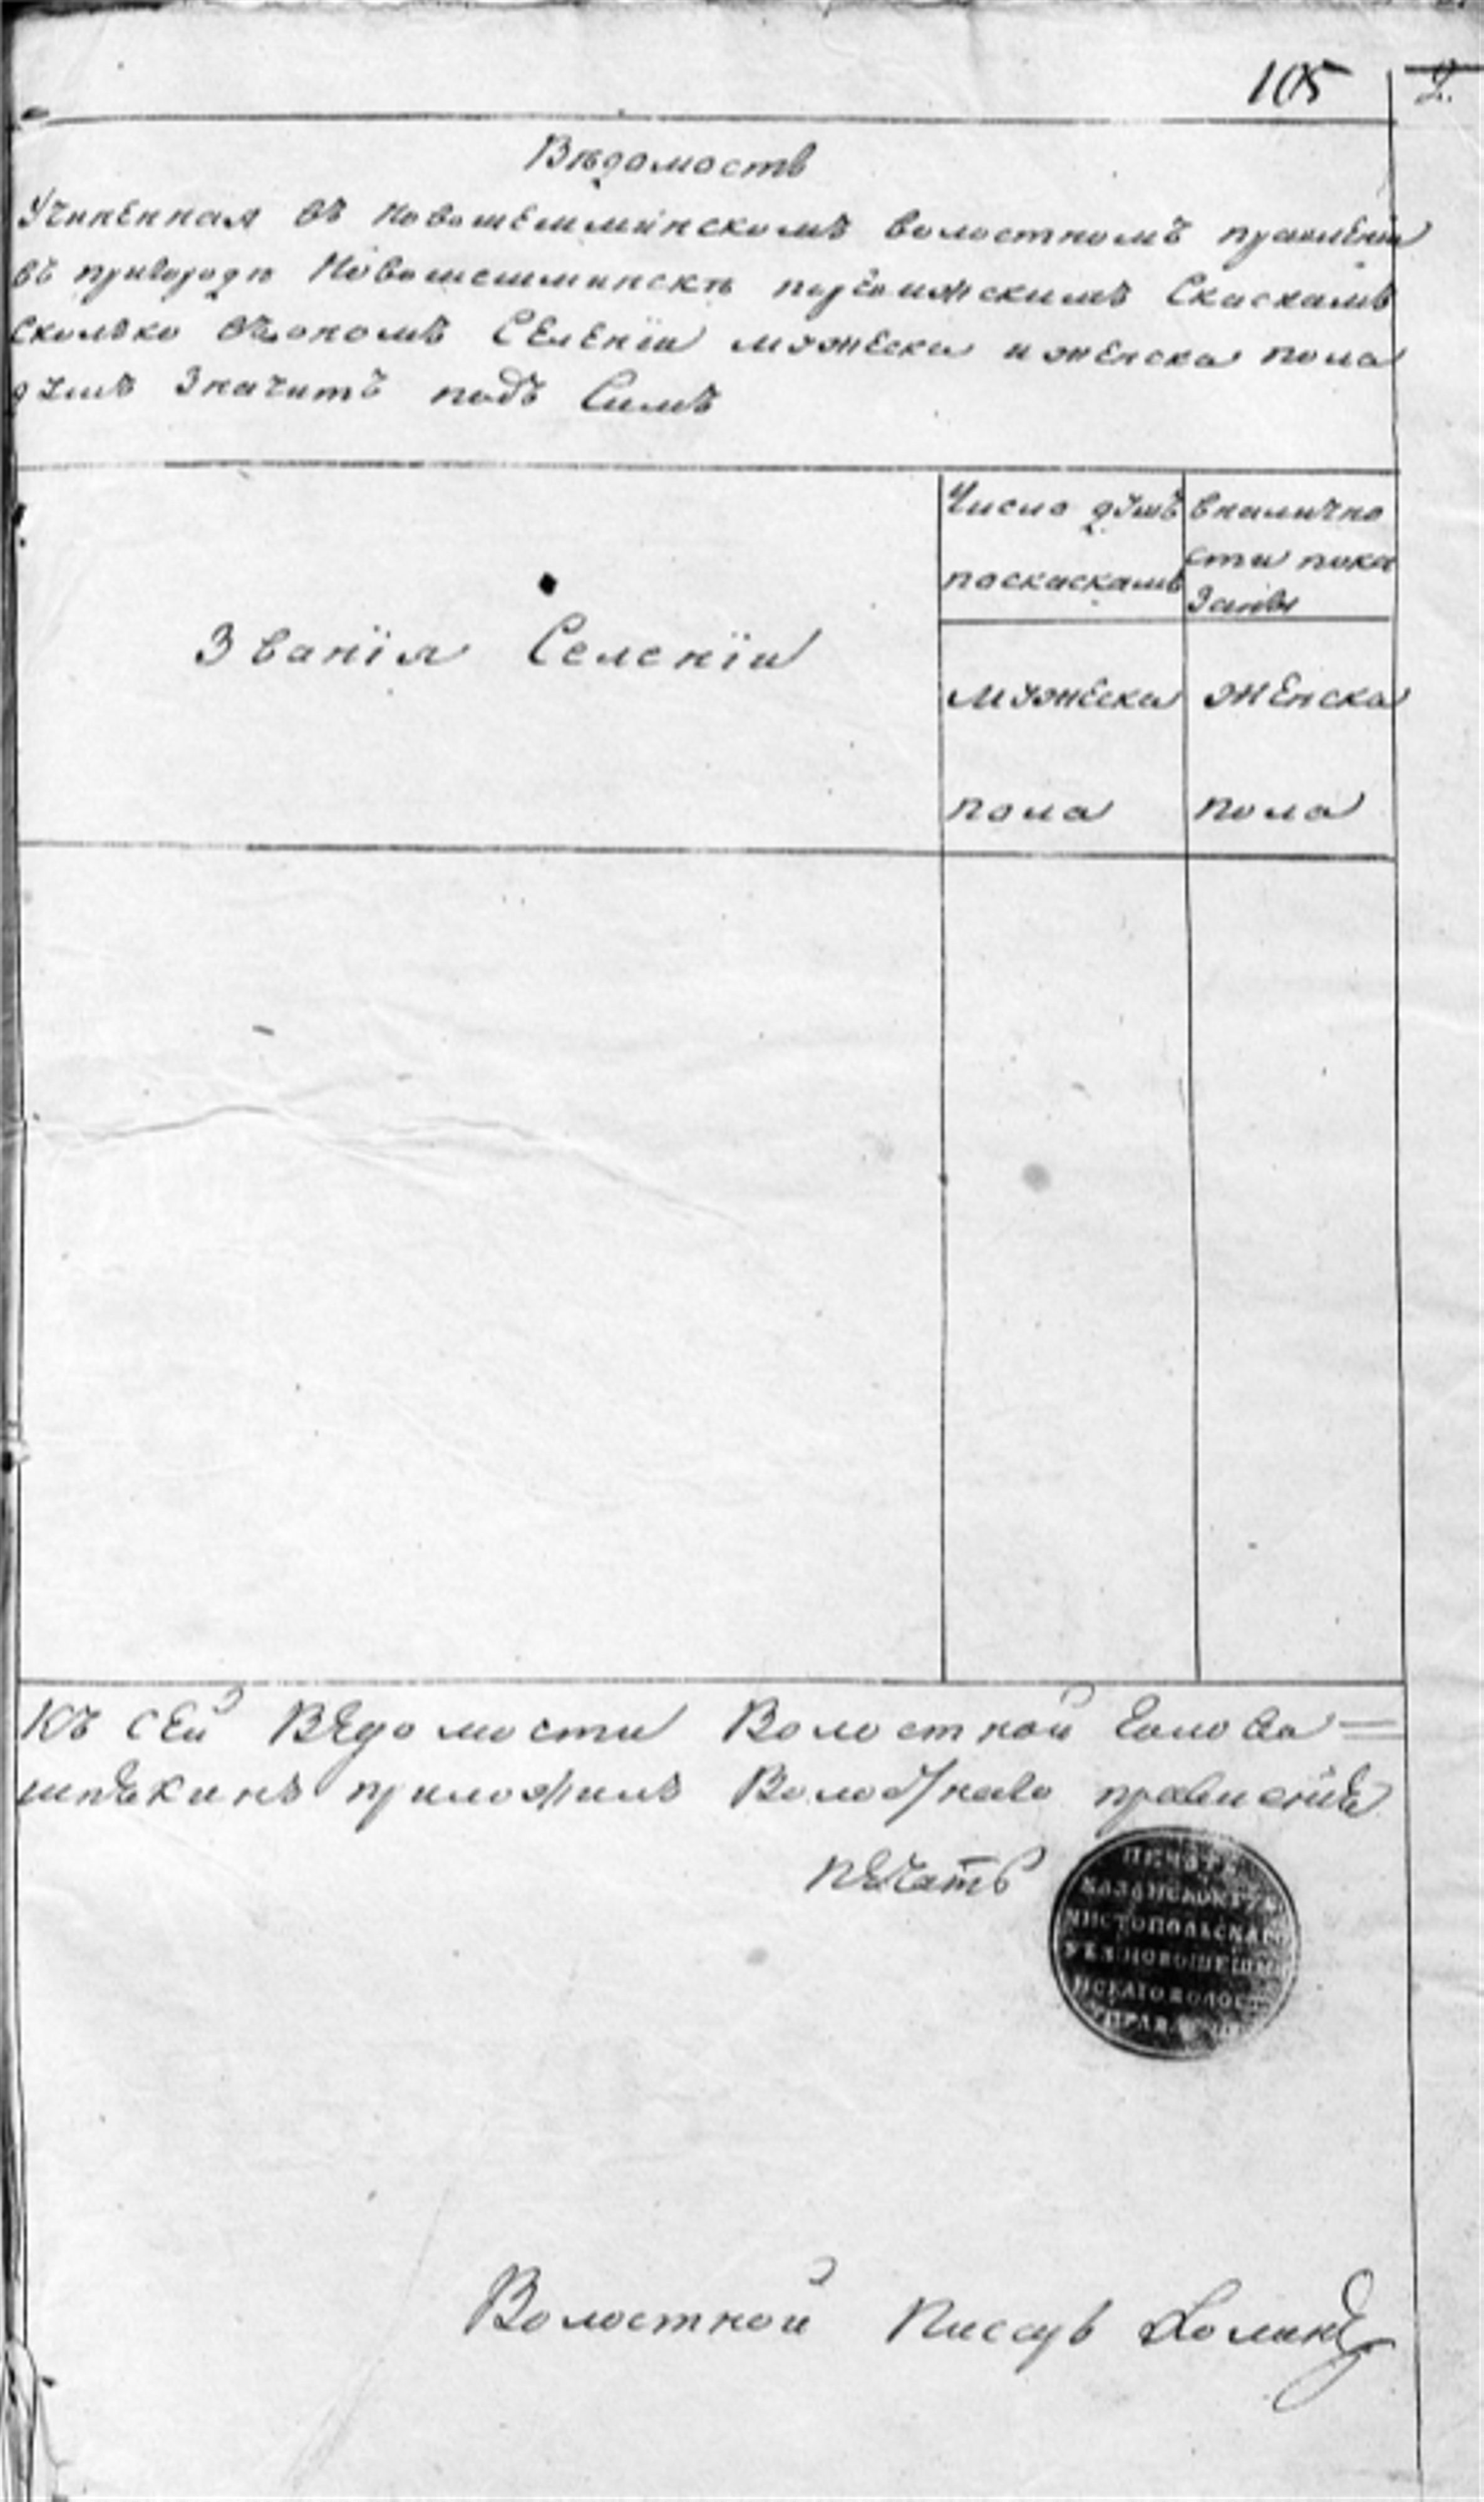 105
2.
Вѣдомость
Учиненная въ Новошешминскомъ волостномъ правленіи
въ пригородѣ Новошешминскѣ ревижскимъ Скаскамъ
сколько въономъ Селеніи мужеска и женска пола
душъ Значитъ подъ Симъ
Званія Селеніи
Число душъ
поскаскамъ
вналично
сти пока
Заны
мужеска
пола
женска
пола
Къ сей Вѣдомости Волостной Голова =
приложилъ Волостнаво правленія
печать
ПЕЧАТЬ
КАЗАНСКОЙ ГУБ
ЧИСТОПОЛЬСКАГО
УЕЗ НОВОШЕШМИ
НСКАГО ВОЛОСТ
ПРАВЛЕНІЯ
Волостной Писарь